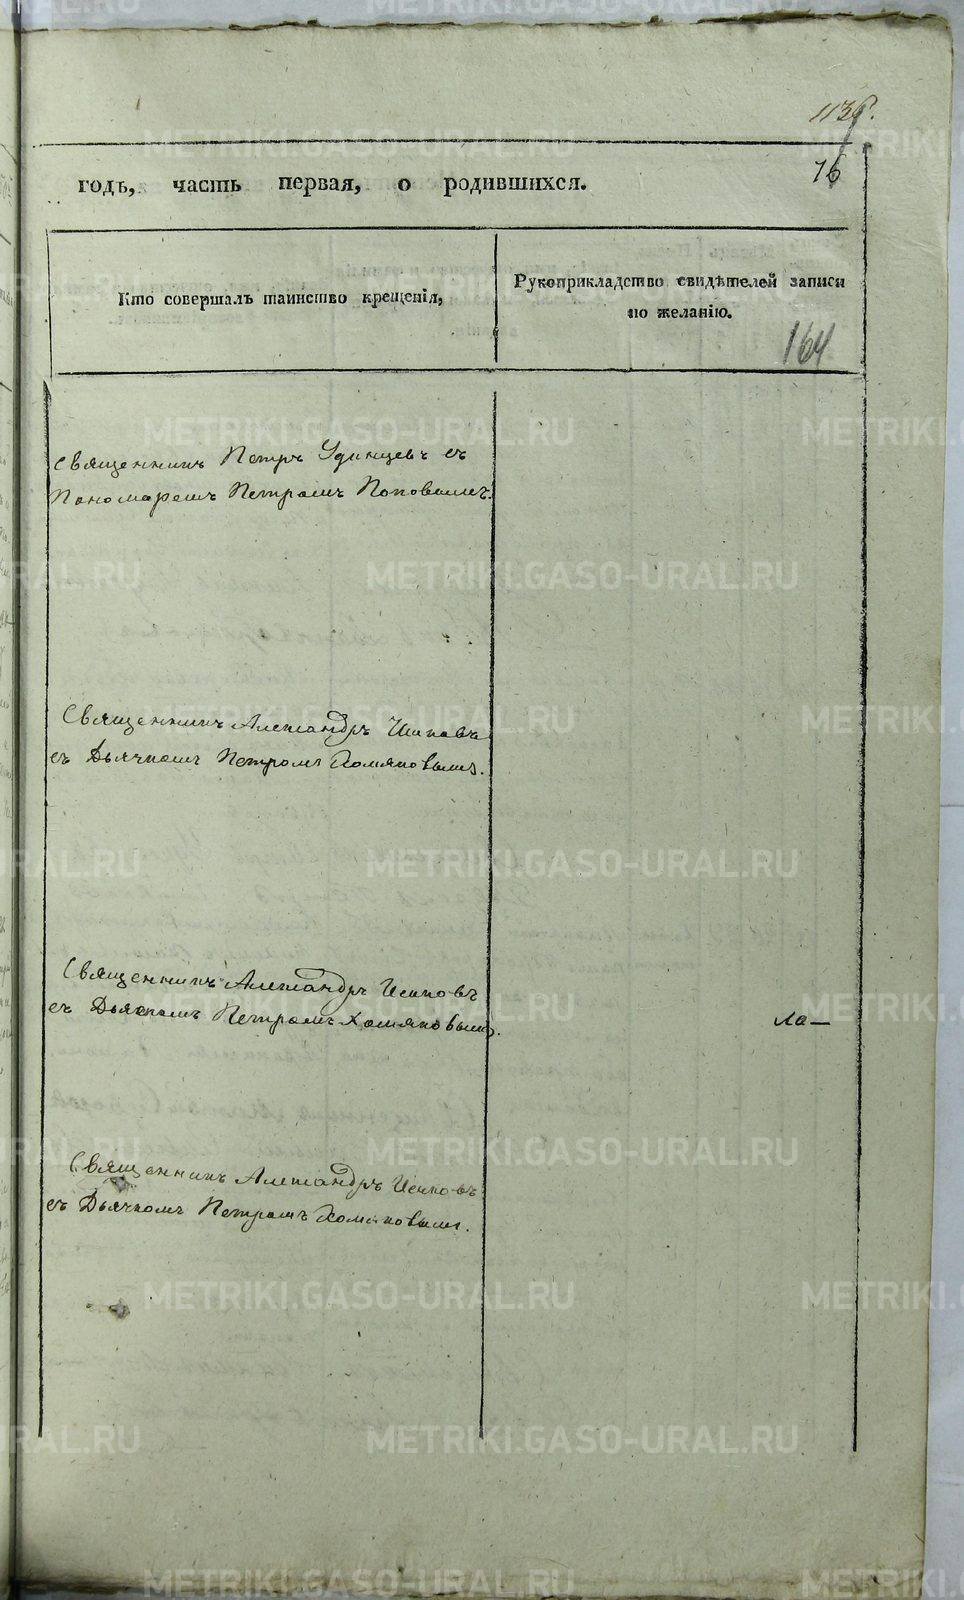 113
76
годъ, часть первая, о родившихся.
Кто совершалъ таинство крещенія,
Рукоприкладство свидѣтелей записи
по желанію.
164
Священникъ Петръ Удинцевъ съ
Пономаремъ Петромъ Поповымъ.
Священникъ Александръ
съ Дьячкомъ Петромъ Хомяковымъ.
Священникъ Александръ
съ Дьячкомъ Петромъ Хомяковымъ.
ла—
Священникъ Александръ
съ Дьячкомъ Петромъ Хомяковымъ.
METRIKI.GASO-URAL.RU